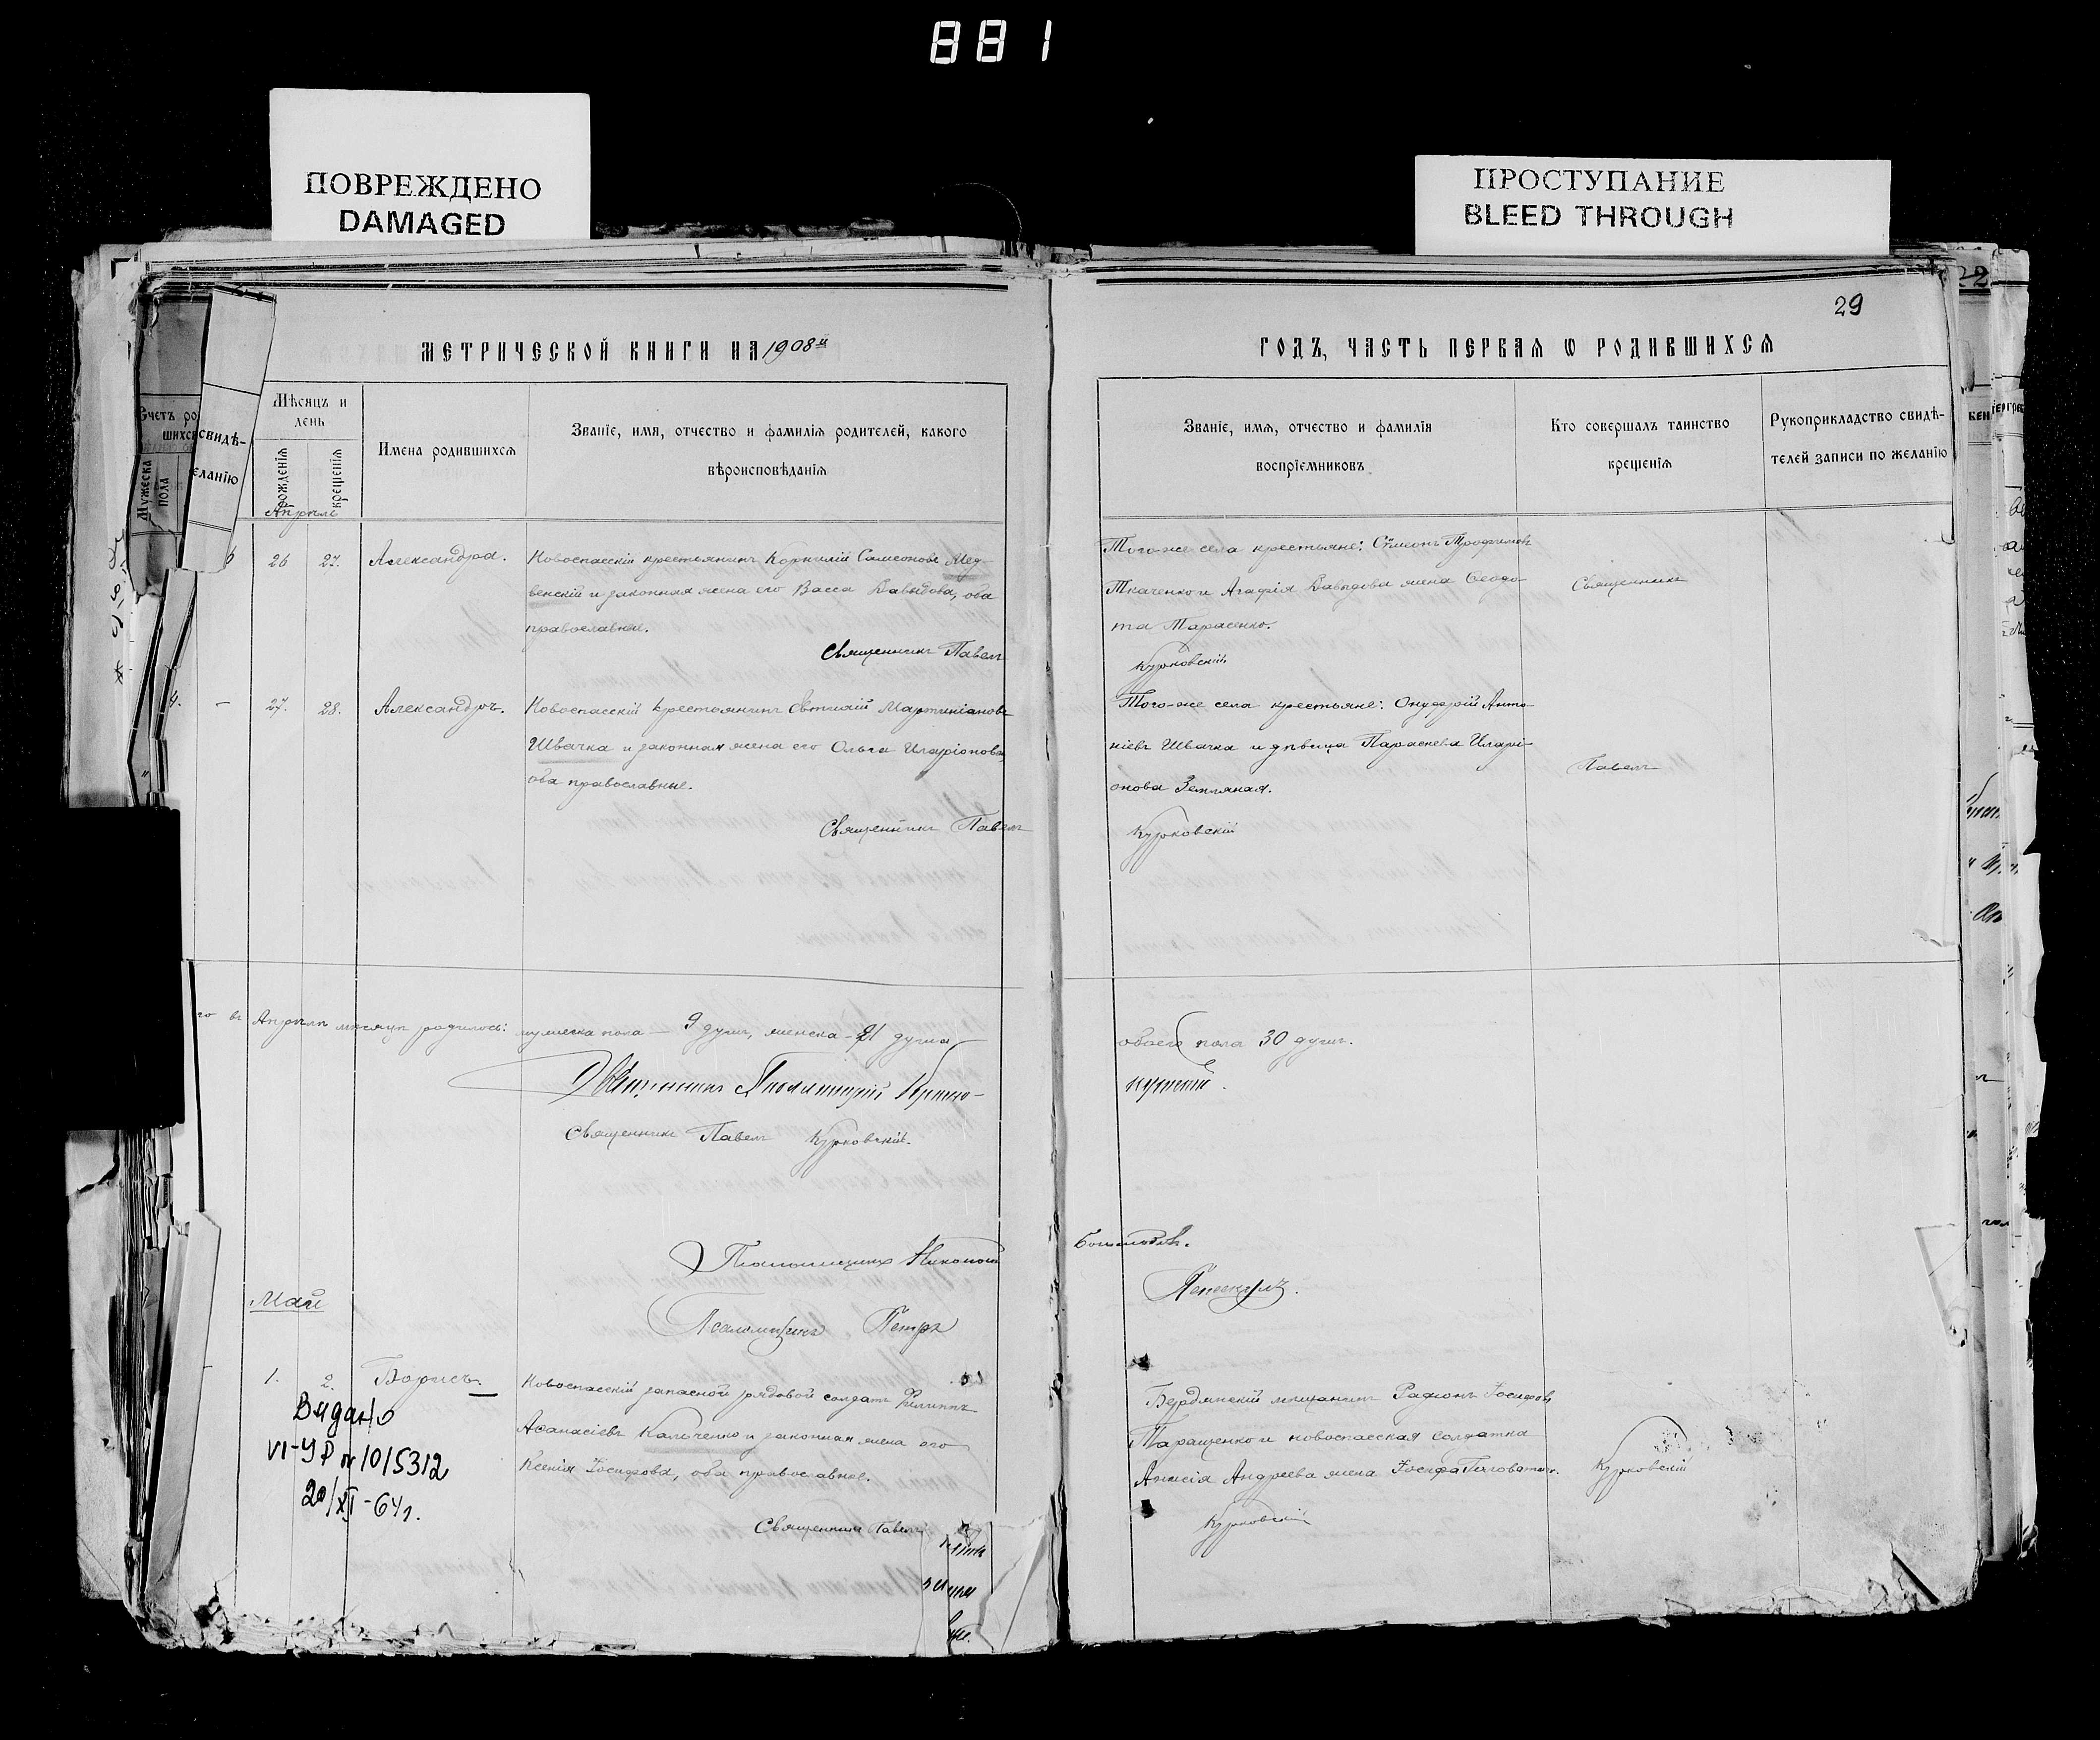 881
ПОВРЕЖДЕНО
DAMAGED
ПРОСТУПАНИЕ
BLEED THROUGH
29
МЕТРИЧЕСКОЙ КНИГИ НА 1908й
ГОДЪ, ЧАСТЬ ПЕРВАЯ Ѡ РОДИВШИХСЯ
Счетъ ро
шихс
Мужеска пола
свидѣ-
еланію
Мѣсяцъ и день
рожденія
крещенія
Имена родившихся
Званіе, имя, отчество и фамилія родителей, какого
вѣроисповѣданія
Званіе, имя, отчество и фамилія
воспріемниковъ.
Кто совершалъ таинство
крещенія
Рукоприкладство свидѣ-
телей записи по желанію
Апрѣль
26 27. Александра. Новоспасскій крестьянинъ Корнилій Самсоновъ Мед-
венскій и законная жена его Васса Давыдова, оба
православные.
Священникъ Павелъ
Того-же села крестьяне: Сѵмеонъ Трофимовъ
Ткаченко и Агафія Давидова жена Ѳеодо-
та Тарасенко.
Курковскій
Священникъ
4. - 27. 28. Александръ. Новоспасскій крестьянинъ Евтихій Мартиніановъ
Швачка и законная жена его Ольга Иларіонова,
оба православные.
Священникъ Павелъ
Того-же села крестьяне: Онуфрій Анто-
ніевъ Швачка и дѣвица Параскева Иларі-
онова Земляная.
Курковскій
Павелъ
го въ Апрѣлѣ мѣсяцѣ родилось: мужеска пола - 9 душъ, женска - 21 душа
обоего пола 30 душъ.
Священникъ
Священникъ Павелъ Курковскій.
Псаломщикъ
Май
Псаломщикъ Петръ
1. 2. Борисъ. Новоспасскій запасной рядовой солдатъ Филиппъ
Аѳанасіевъ Кальченко и законная жена его
Ксенія Іосифова, оба православные.
Священникъ Павелъ
Бердянскій мѣщанинъ Родіонъ Іосифовъ
Таращенко и новоспасская солдатка
Анисія Андреева жена Іосифа
Курковскій
Курковскій
Видано
VI-УР № 1015312
20/XI-64г.